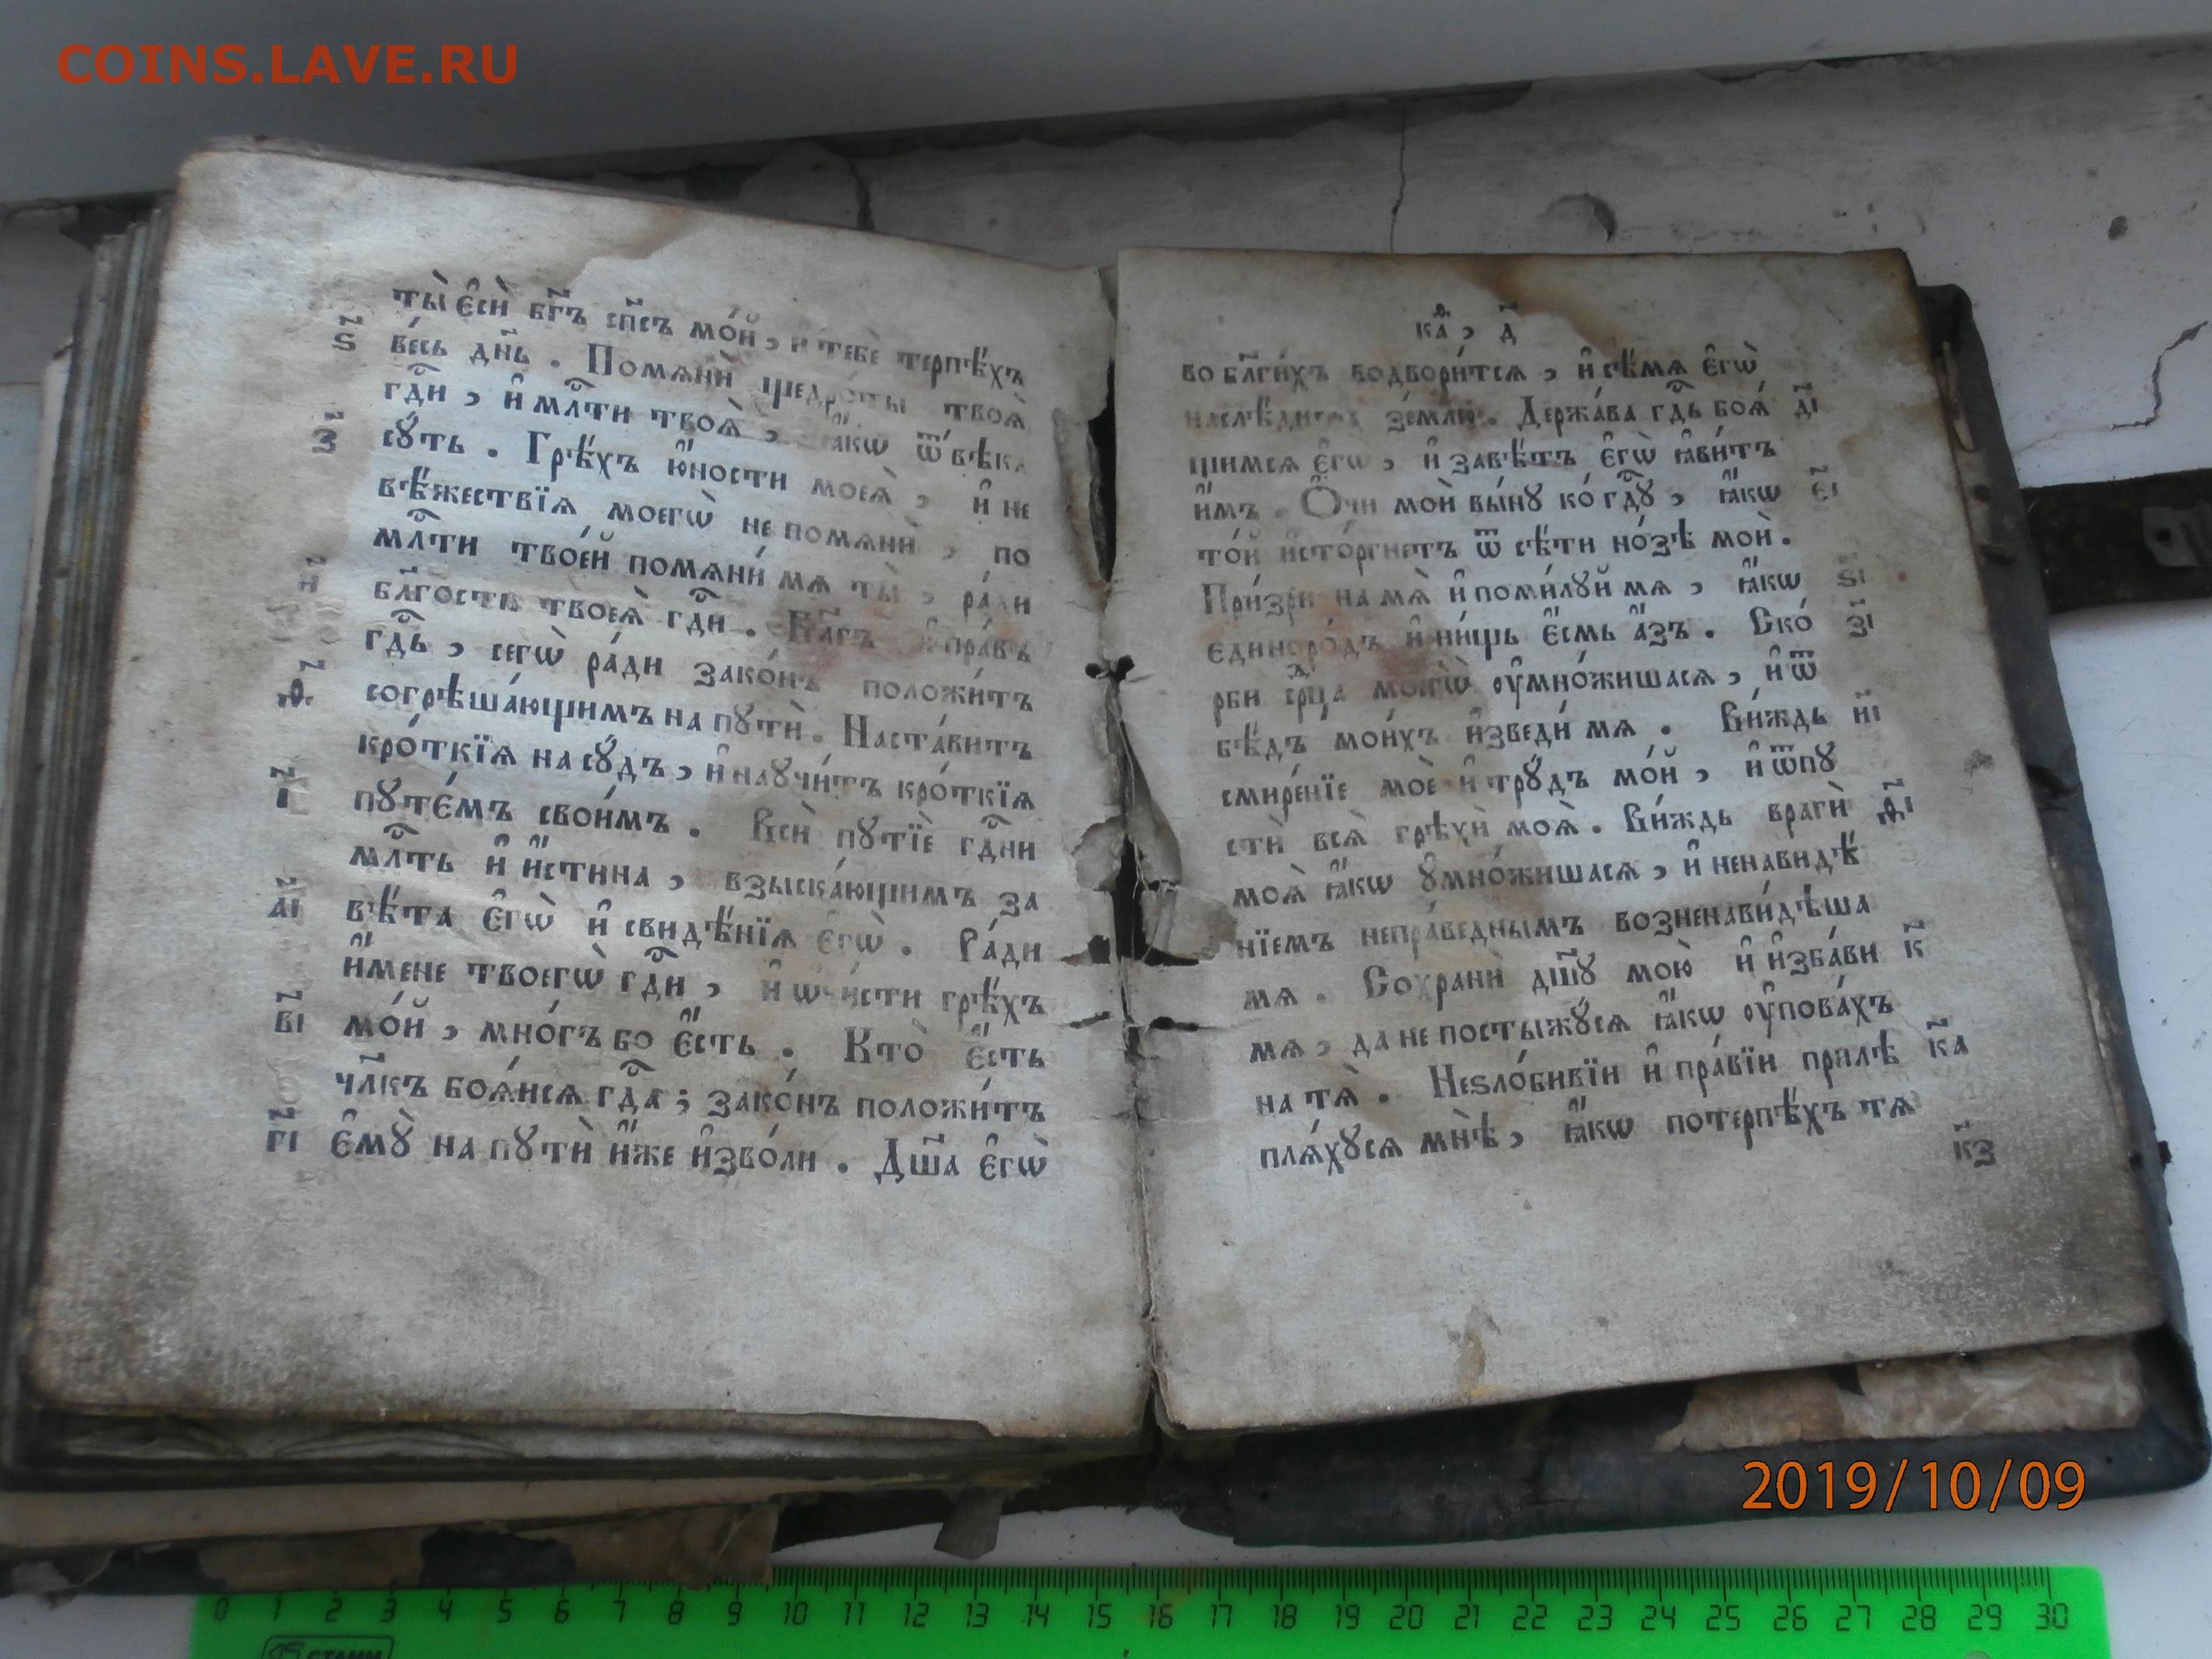 COINS.LAVE.RU
ты̀ є҆сѝ бг҃ъ сп҃съ мо́й , и҆ тебѐ терпѣ́хъ
ѕ҃ ве́сь дн҃ь . Помѧнѝ щедро́ты твоѧ̀
гдⷭ҇и , и҆ млⷭ҇ти твоѧ̀ , ꙗ҆́кѡ ѿ вѣ́ка
з҃ сꙋ́ть . Грѣ́хъ ю҆́ности моеѧ̀ , и҆ не
вѣ́жествїѧ моегѡ̀ не помѧнѝ , по
млⷭ҇ти твое́й помѧни́ мѧ ты̀ , ра́ди
и҃ бл҃гости твоеѧ̀ гдⷭ҇и . Бл҃гъ и҆ пра́въ
гдⷭ҇ь , сегѡ̀ ра́ди зако́нъ положи́тъ
ѳ҃ согрѣша́ющимъ на пꙋтѝ . Наста́витъ
крѡ́ткїѧ на сꙋ́дъ , и҆ наꙋчи́тъ кро́ткїѧ
і҃ пꙋте́мъ свои́мъ . Всѝ пꙋтїѐ гдⷭ҇ни
млⷭ҇ть и҆ и҆́стина , взыска́ющимъ за
аі҃ вѣ́та є҆гѡ̀ и҆ свидѣ́нїѧ є҆гѡ̀ . Ра́ди
и҆́мене твоегѡ̀ гдⷭ҇и , и҆ ѡ҆чи́сти грѣ́хъ
ві҃ мо́й , мно́гъ бо є҆́сть . Кто̀ є҆́сть
чл҃къ боѧ́исѧ гдⷭ҇а ; зако́нъ положи́тъ
гі҃ є҆мꙋ̀ на пꙋтѝ и҆́же и҆зво́ли . Дш҃а є҆гѡ̀
каѳⷭ , д҃
во бл҃ги́хъ водвори́тсѧ , и҆ сѣ́мѧ є҆гѡ̀
наслѣ́дитъ зе́млю . Держа́ва гдⷭ҇ь боѧ́ ді҃
щимсѧ є҆гѡ̀ , и҆ завѣ́тъ є҆гѡ̀ ꙗ҆ви́тъ
и҆̀мъ . О҆́чи моѝ вы́нꙋ ко́ гдⷭ҇ꙋ , ꙗ҆́кѡ єі҃
то́й и҆сто́ргнетъ ѿ сѣ́ти но́зѣ моѝ .
При́зри на мѧ̀ и҆ поми́лꙋй мѧ , ꙗ҆́кѡ ѕі҃
єдиноро́дъ и҆ ни́щь є҆́смь а҆́зъ . Ско́ зі҃
рби срⷣца моегѡ̀ ᲂу҆мно́жишасѧ , и҆ ѿ
бѣ́дъ мои́хъ и҆зведи́ мѧ . Ви́ждь иі҃
смире́нїе моѐ и҆ трꙋ́дъ мо́й , и҆ ѿпꙋ
стѝ всѧ̀ грѣхѝ моѧ̀ . Ви́ждь врагѝ ѳі҃
моѧ̀ ꙗ҆́кѡ ꙋ҆мно́жишасѧ , и҆ ненавидѣ́
нїемъ непра́веднымъ возненави́дѣша
мѧ . Сохранѝ дш҃ꙋ мою̀ и҆ и҆зба́ви к҃
мѧ , да не постыжꙋ́сѧ ꙗ҆́кѡ ᲂу҆пова́хъ
на тѧ̀ . Неѕло́бивїи и҆ пра́вїи прилѣ ка҃
плѧ́хꙋсѧ мнѣ̀ , ꙗ҆́кѡ потерпѣ́хъ тѧ
к҃з
2019/10/09
0 1 2 3 4 5 6 7 8 9 10 11 12 13 14 15 16 17 18 19 20 21 22 23 24 25 26 27 28 29 30